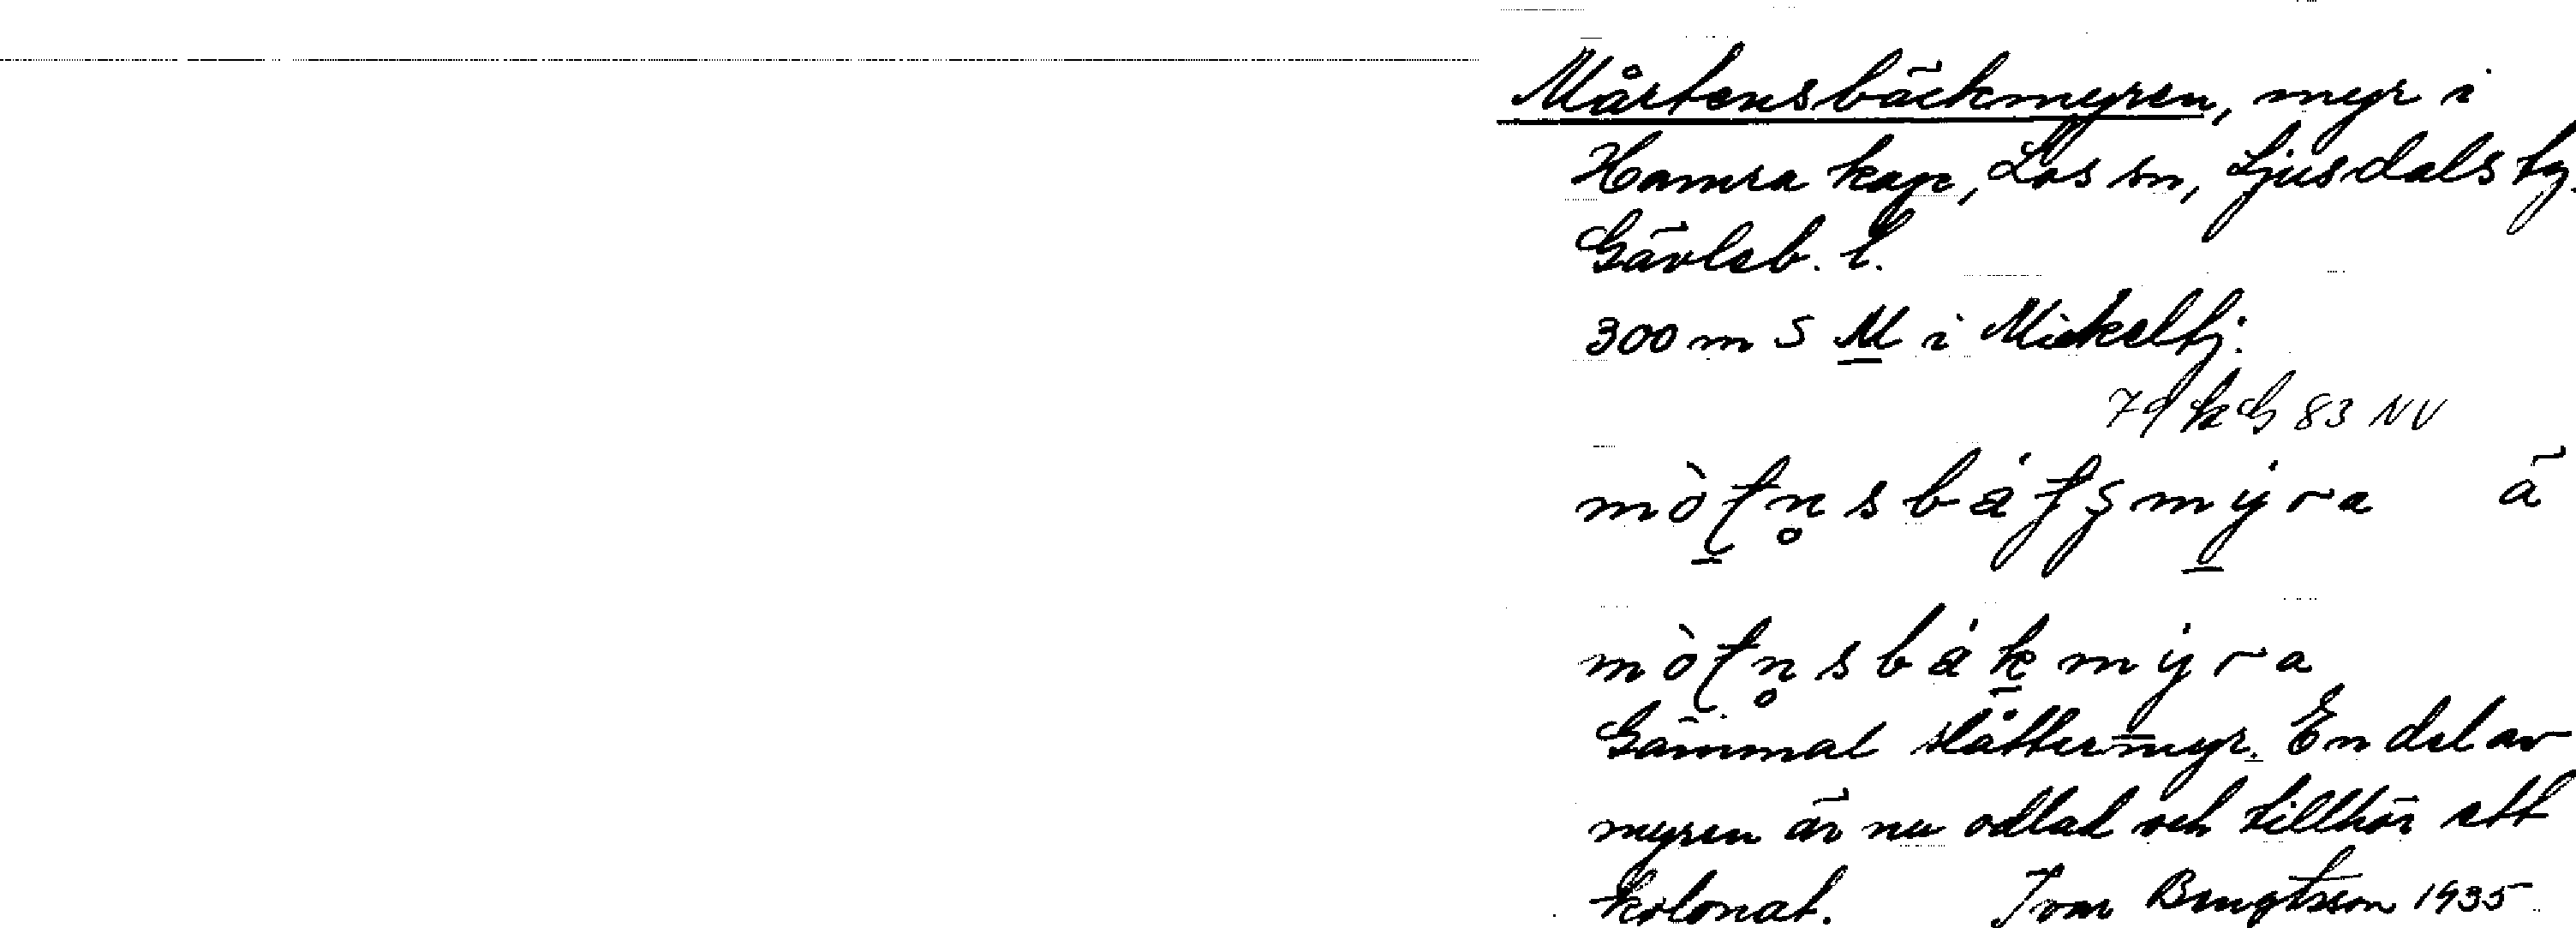 Mårtensbäckmyren, myr i
Hamra kap, Los sn, Ljusdals tg.
Gävleb. l.
300 m S M i Mickeltj.
83 NV
ä
Gammal slåttermyr. En del av
myren är nu odlad och tillhör ett
kolonat. Ivar Bengtsson 1935